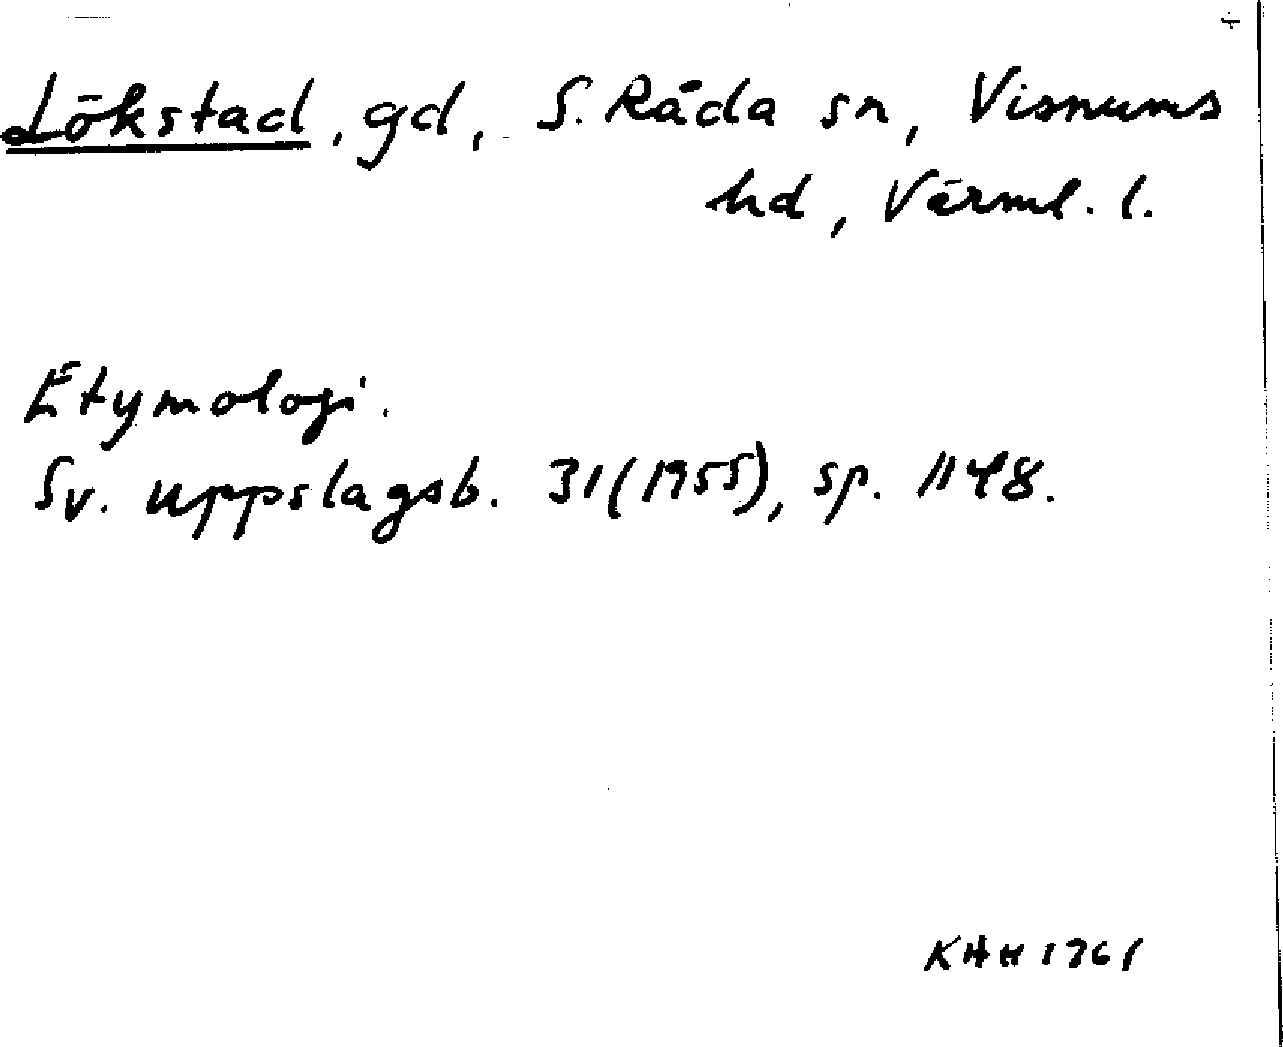 Lökstad, gd, S. Råda sn, Visnums
hd, Värml. l.
Etymologi.
Sv. uppslagsb. 31 (1955), sp. 1148.
KHH 1961